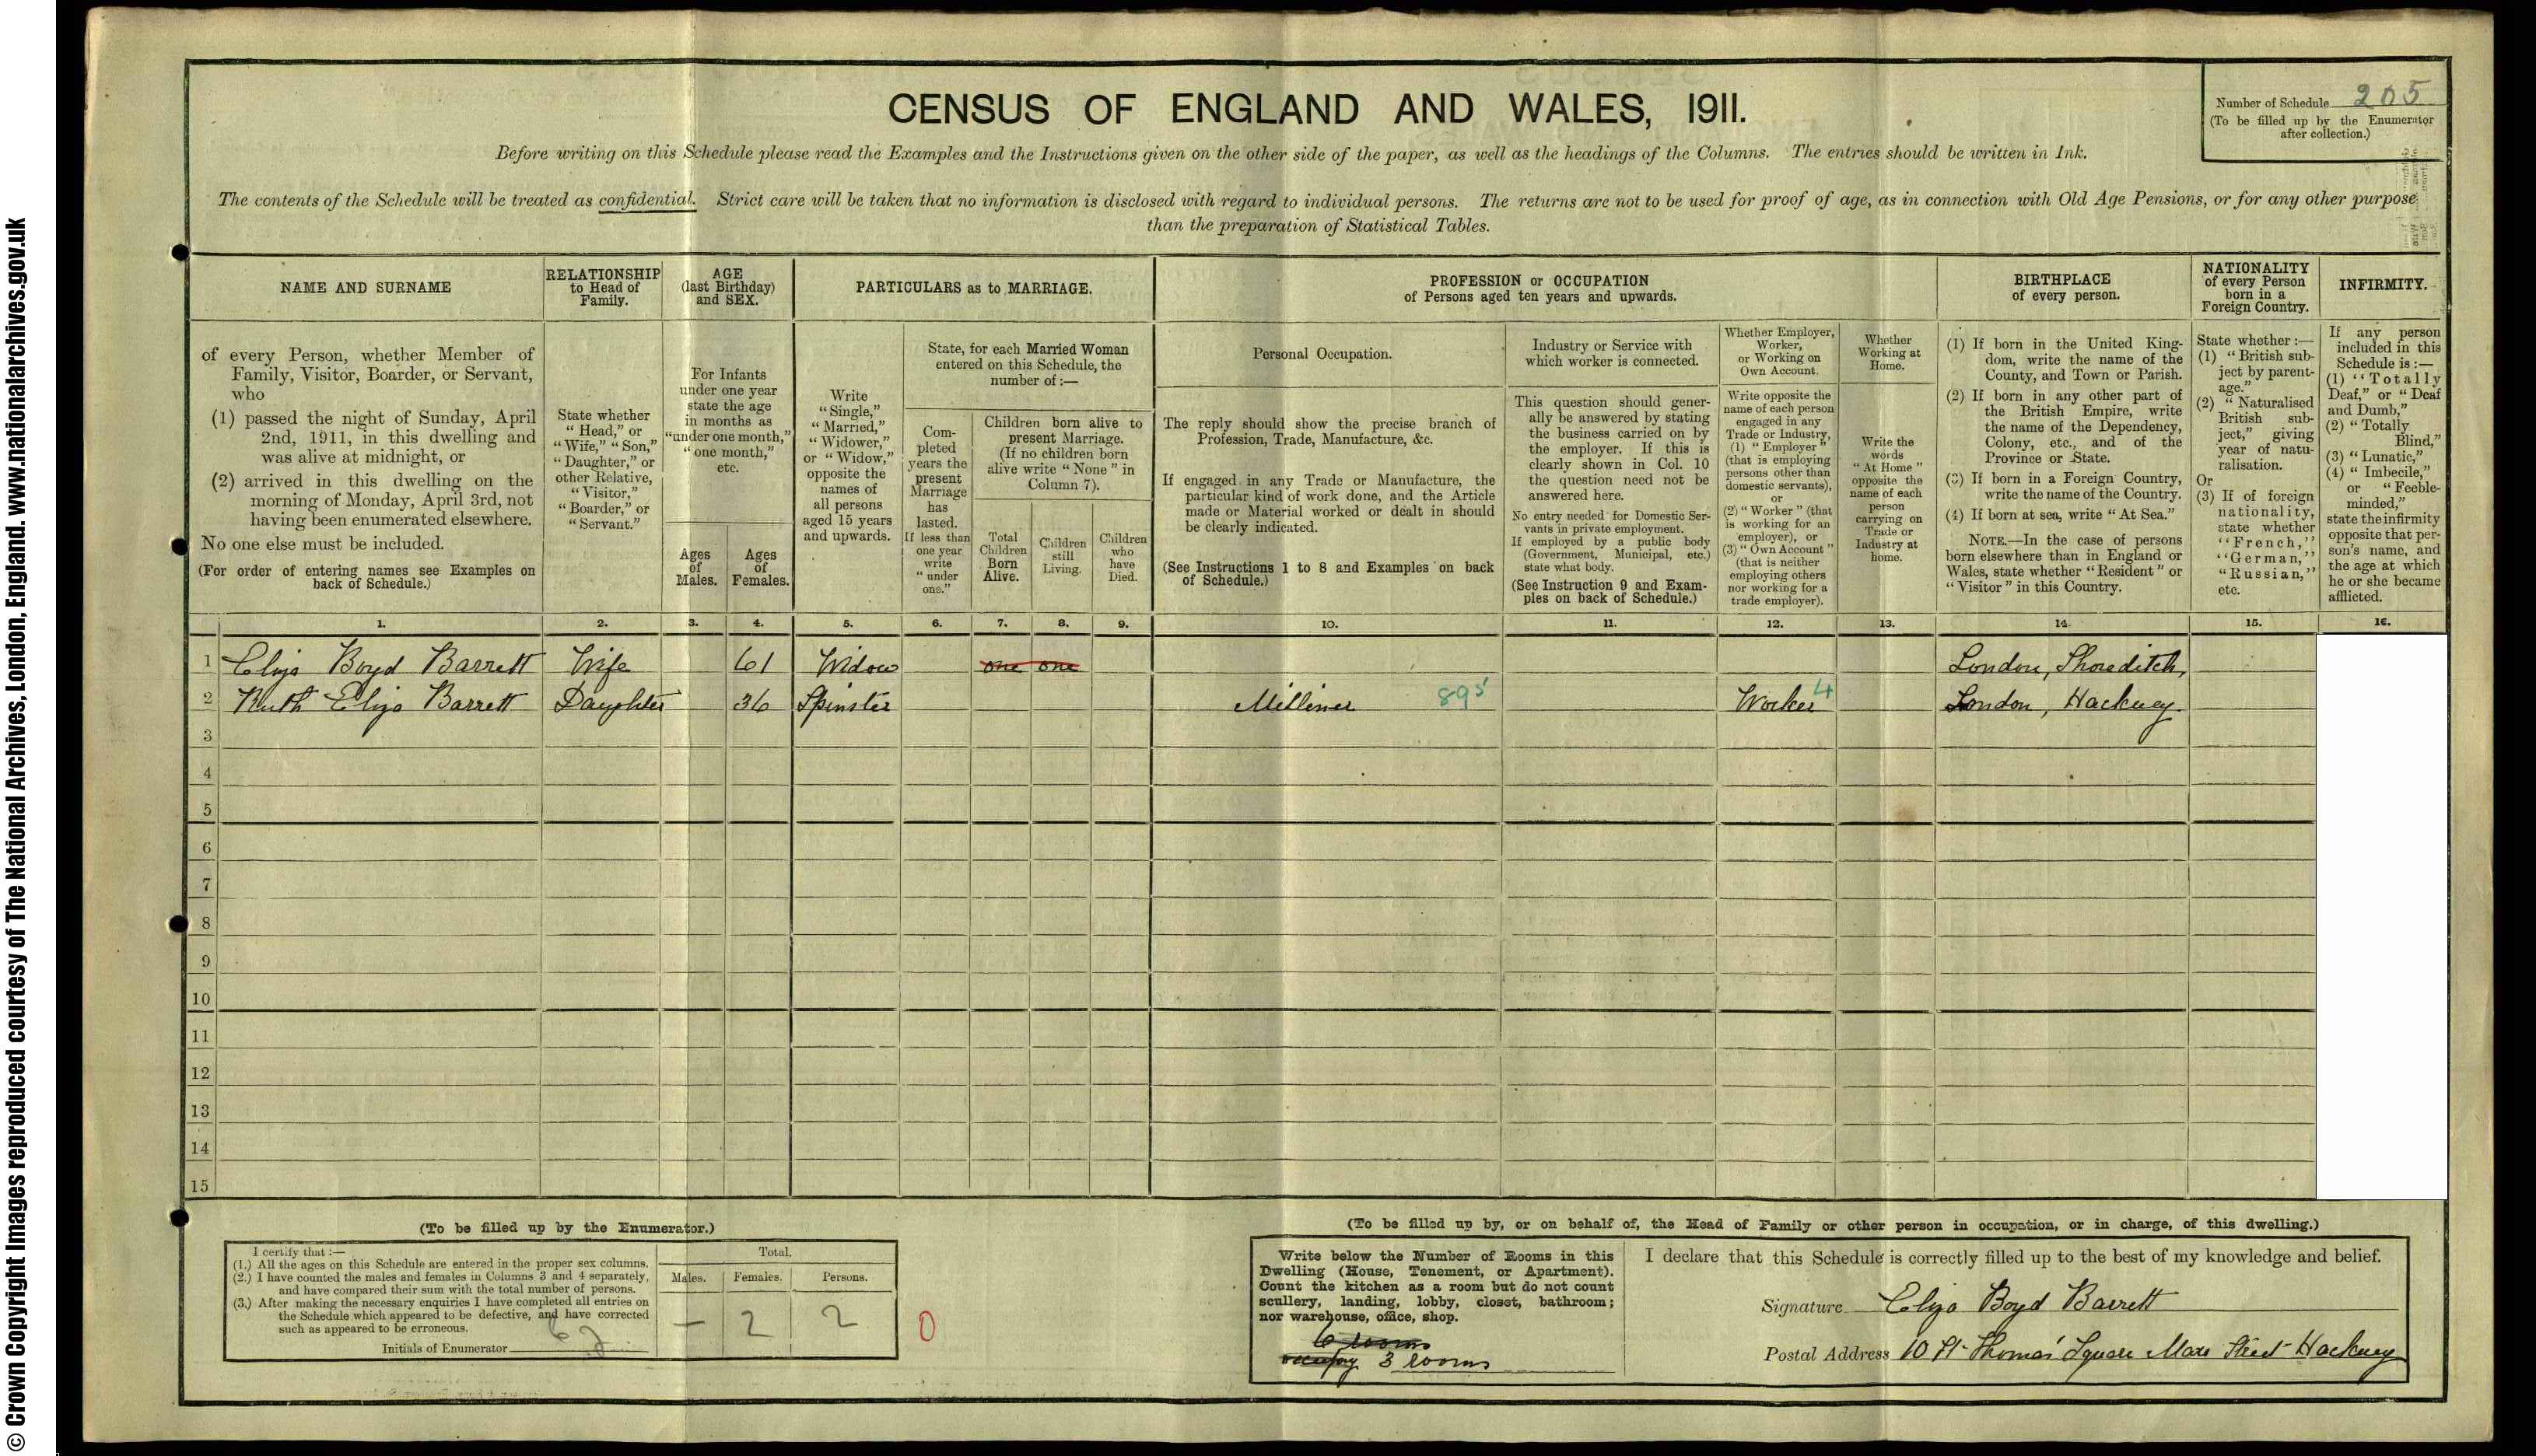 © Crown Copyright Images reproduced courtesy of The National Archives, London, England. www.nationalarchives.gov.uk
CENSUS OF ENGLAND AND WALES, 1911.
Number of Schedule 205
(To be filled up by the Enumerator
after collection.)
Before writing on this Schedule please read the Examples and the Instructions given on the other side of the paper, as well as the headings of the Columns. The entries should be written in Ink.
The contents of the Schedule will be treated as confidential. Strict care will be taken that no information is disclosed with regard to individual persons. The returns are not to be used for proof of age, as in connection with Old Age Pensions, or for any other purpose
than the preparation of Statistical Tables.
NAME AND SURNAME
of every Person, whether Member of
Family, Visitor, Boarder, or Servant,
who
(1) passed the night of Sunday, April
2nd, 1911, in this dwelling and
was alive at midnight, or
(2) arrived in this dwelling on the
morning of Monday, April 3rd, not
having been enumerated elsewhere.
No one else must be included.
(For order of entering names see Examples on
back of Schedule.)
RELATIONSHIP
to Head of
Family.
State whether
"Head," or
"Wife," "Son,"
"Daughter," or
other Relative,
"Visitor,"
"Boarder," or
"Servant."
AGE
(last Birthday)
and SEX.
For Infants
under one year
state the age
in months as
"under one month,"
"one month,"
etc.
Ages
of
Males.
Ages
of
Females.
PARTICULARS as to MARRIAGE.
Write
"Single,"
"Married,"
"Widower,"
or "Widow,"
opposite the
names of
all persons
aged 15 years
and upwards.
State, for each Married Woman
entered on this Schedule, the
number of:—
Com-
pleted
years the
present
Marriage
has
lasted.
If less than
one year
write
"under
one."
Children born alive to
present Marriage.
(If no children born
alive write "None" in
Column 7).
Total
Children
Born
Alive.
Children
still
Living.
Children
who
have
Died.
PROFESSION or OCCUPATION
of Persons aged ten years and upwards.
Personal Occupation.
The reply should show the precise branch of
Profession, Trade, Manufacture, &c.
If engaged in any Trade or Manufacture, the
particular kind of work done, and the Article
made or Material worked or dealt in should
be clearly indicated.
(See Instructions 1 to 8 and Examples on back
of Schedule.)
Industry or Service with
which worker is connected.
This question should gener-
ally be answered by stating
the business carried on by
the employer. If this is
clearly shown in Col. 10
the question need not be
answered here.
No entry needed for Domestic Ser-
vants in private employment.
If employed by a public body
(Government, Municipal, etc.)
state what body.
(See Instruction 9 and Exam-
ples on back of Schedule.)
Whether Employer,
Worker,
or Working on
Own Account.
Write opposite the
name of each person
engaged in any
Trade or Industry,
(1) "Employer"
(that is employing
persons other than
domestic servants),
or
(2) "Worker" (that
is working for an
employer), or
(3) "Own Account"
(that is neither
employing others
nor working for a
trade employer).
Whether
Working at
Home.
Write the
words
"At Home"
opposite the
name of each
person
carrying on
Trade or
Industry at
home.
BIRTHPLACE
of every person.
(1) If born in the United King-
dom, write the name of the
County, and Town or Parish.
(2) If born in any other part of
the British Empire, write
the name of the Dependency,
Colony, etc., and of the
Province or State.
(3) If born in a Foreign Country,
write the name of the Country.
(4) If born at sea, write "At Sea."
NOTE.—In the case of persons
born elsewhere than in England or
Wales, state whether "Resident" or
"Visitor" in this Country.
NATIONALITY
of every Person
born in a
Foreign Country.
State whether:—
(1) "British sub-
ject by parent-
age."
(2) "Naturalised
British sub-
ject," giving
year of natu-
ralisation.
Or
(3) If of foreign
nationality,
state whether
"French,"
"German,"
"Russian,"
etc.
INFIRMITY.
If any person
included in this
Schedule is:—
(1) "Totally
Deaf," or "Deaf
and Dumb,"
(2) "Totally
Blind,"
(3) "Lunatic,"
(4) "Imbecile,"
or "Feeble-
minded,"
state the infirmity
opposite that per-
son's name, and
the age at which
he or she became
afflicted.
1. 2. 3. 4. 5. 6. 7. 8. 9. 10. 11. 12. 13. 14. 15. 16.
1 Eliza Boyd Barrett Wife 61 Widow one one London, Shoreditch,
2 Ruth Eliza Barrett Daughter 36 Spinster Milliner 895 Worker 4 London, Hackney.
3
4
5
6
7
8
9
10
11
12
13
14
15
(To be filled up by the Enumerator.)
I certify that:—
(1.) All the ages on this Schedule are entered in the proper sex columns.
(2.) I have counted the males and females in Columns 3 and 4 separately,
and have compared their sum with the total number of persons.
(3.) After making the necessary enquiries I have completed all entries on
the Schedule which appeared to be defective, and have corrected
such as appeared to be erroneous.
Initials of Enumerator
Total.
Males. Females. Persons.
— 2 2
0
(To be filled up by, or on behalf of, the Head of Family or other person in occupation, or in charge, of this dwelling.)
Write below the Number of Rooms in this
Dwelling (House, Tenement, or Apartment).
Count the kitchen as a room but do not count
scullery, landing, lobby, closet, bathroom;
nor warehouse, office, shop.
6 rooms
occupy 3 rooms
I declare that this Schedule is correctly filled up to the best of my knowledge and belief.
Signature Eliza Boyd Barrett
Postal Address 10 St Thomas' Square Mare Street Hackney